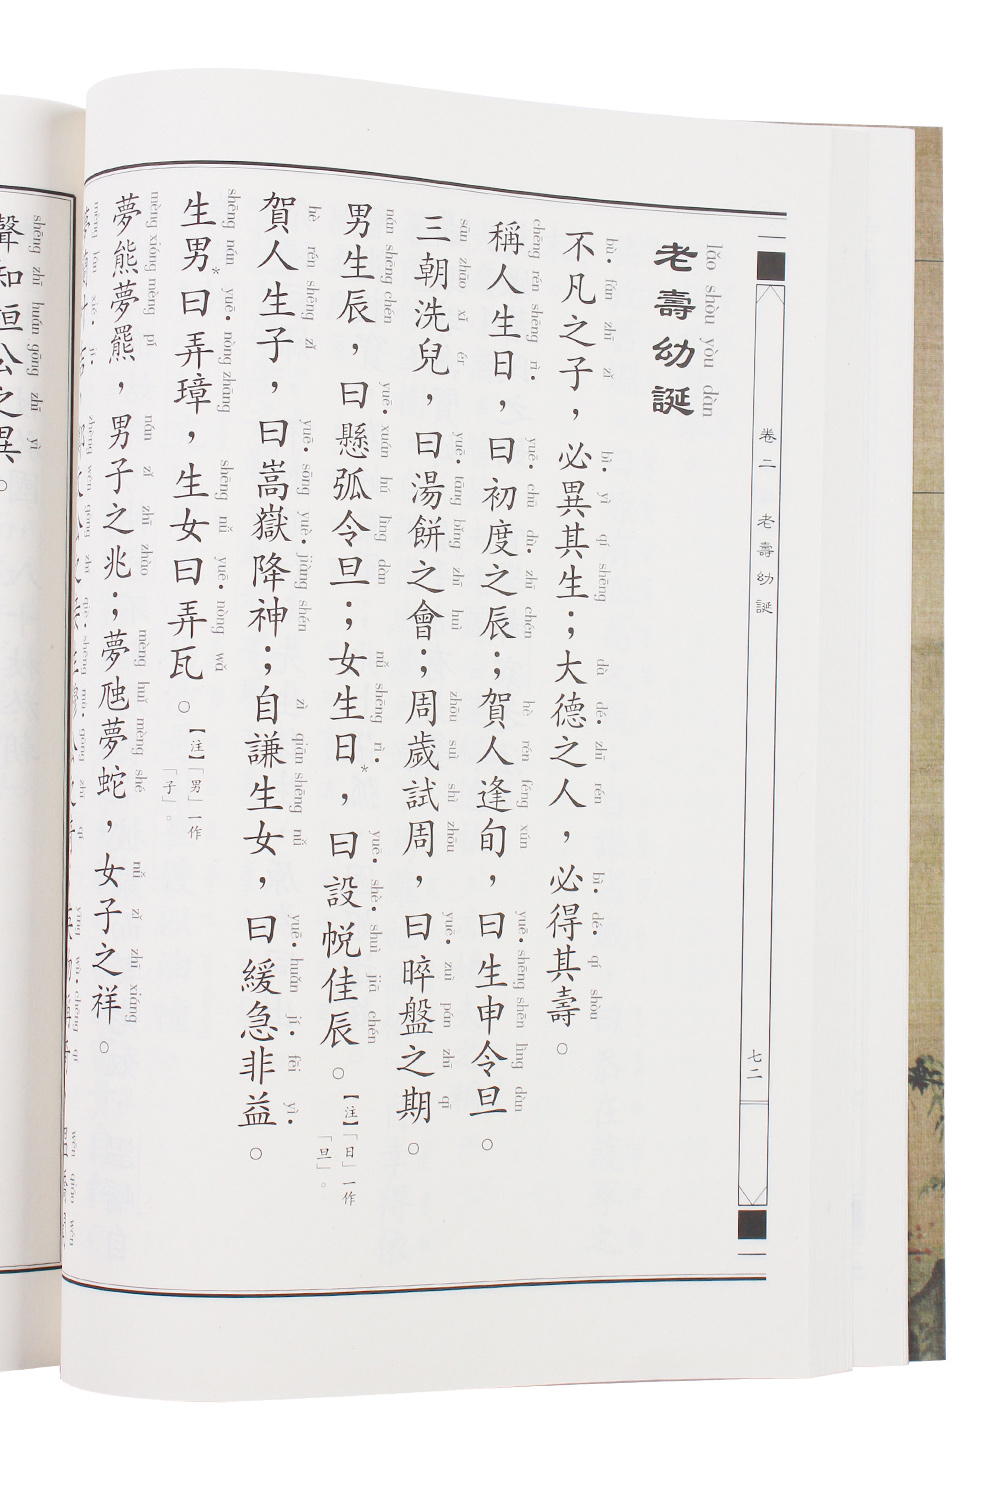 老壽幼誕
lǎo shòu yòu dàn
不凡之子，必異其生；大德之人，必得其壽。
bù fán zhī zǐ bì yì qí shēng dà dé zhī rén bì dé qí shòu
稱人生日，曰初度之辰；賀人逢旬，曰生申令旦。
chēng rén shēng rì yuē chū dù zhī chén hè rén féng xún yuē shēng shēn lìng dàn
三朝洗兒，曰湯餅之會；周歲試周，曰晬盤之期。
sān zhāo xǐ ér yuē tāng bǐng zhī huì zhōu suì shì zhōu yuē zuì pán zhī qī
男生辰，曰懸弧令旦；女生日*，曰設帨佳辰。【注】「日」一作「旦」。
nán shēng chén yuē xuán hú lìng dàn nǚ shēng rì yuē shè shuì jiā chén
賀人生子，曰嵩嶽降神；自謙生女，曰緩急非益。
hè rén shēng zǐ yuē sōng yuè jiàng shén zì qiān shēng nǚ yuē huǎn jí fēi yì
生男*曰弄璋，生女曰弄瓦。【注】「男」一作「子」。
shēng nán yuē nòng zhāng shēng nǚ yuē nòng wǎ
夢熊夢羆，男子之兆；夢虺夢蛇，女子之祥。
mèng xióng mèng pí nán zǐ zhī zhào mèng huǐ mèng shé nǚ zǐ zhī xiáng
聲知桓公之異。
shēng zhī huán gōng zhī yì
卷二 老壽幼誕
七二